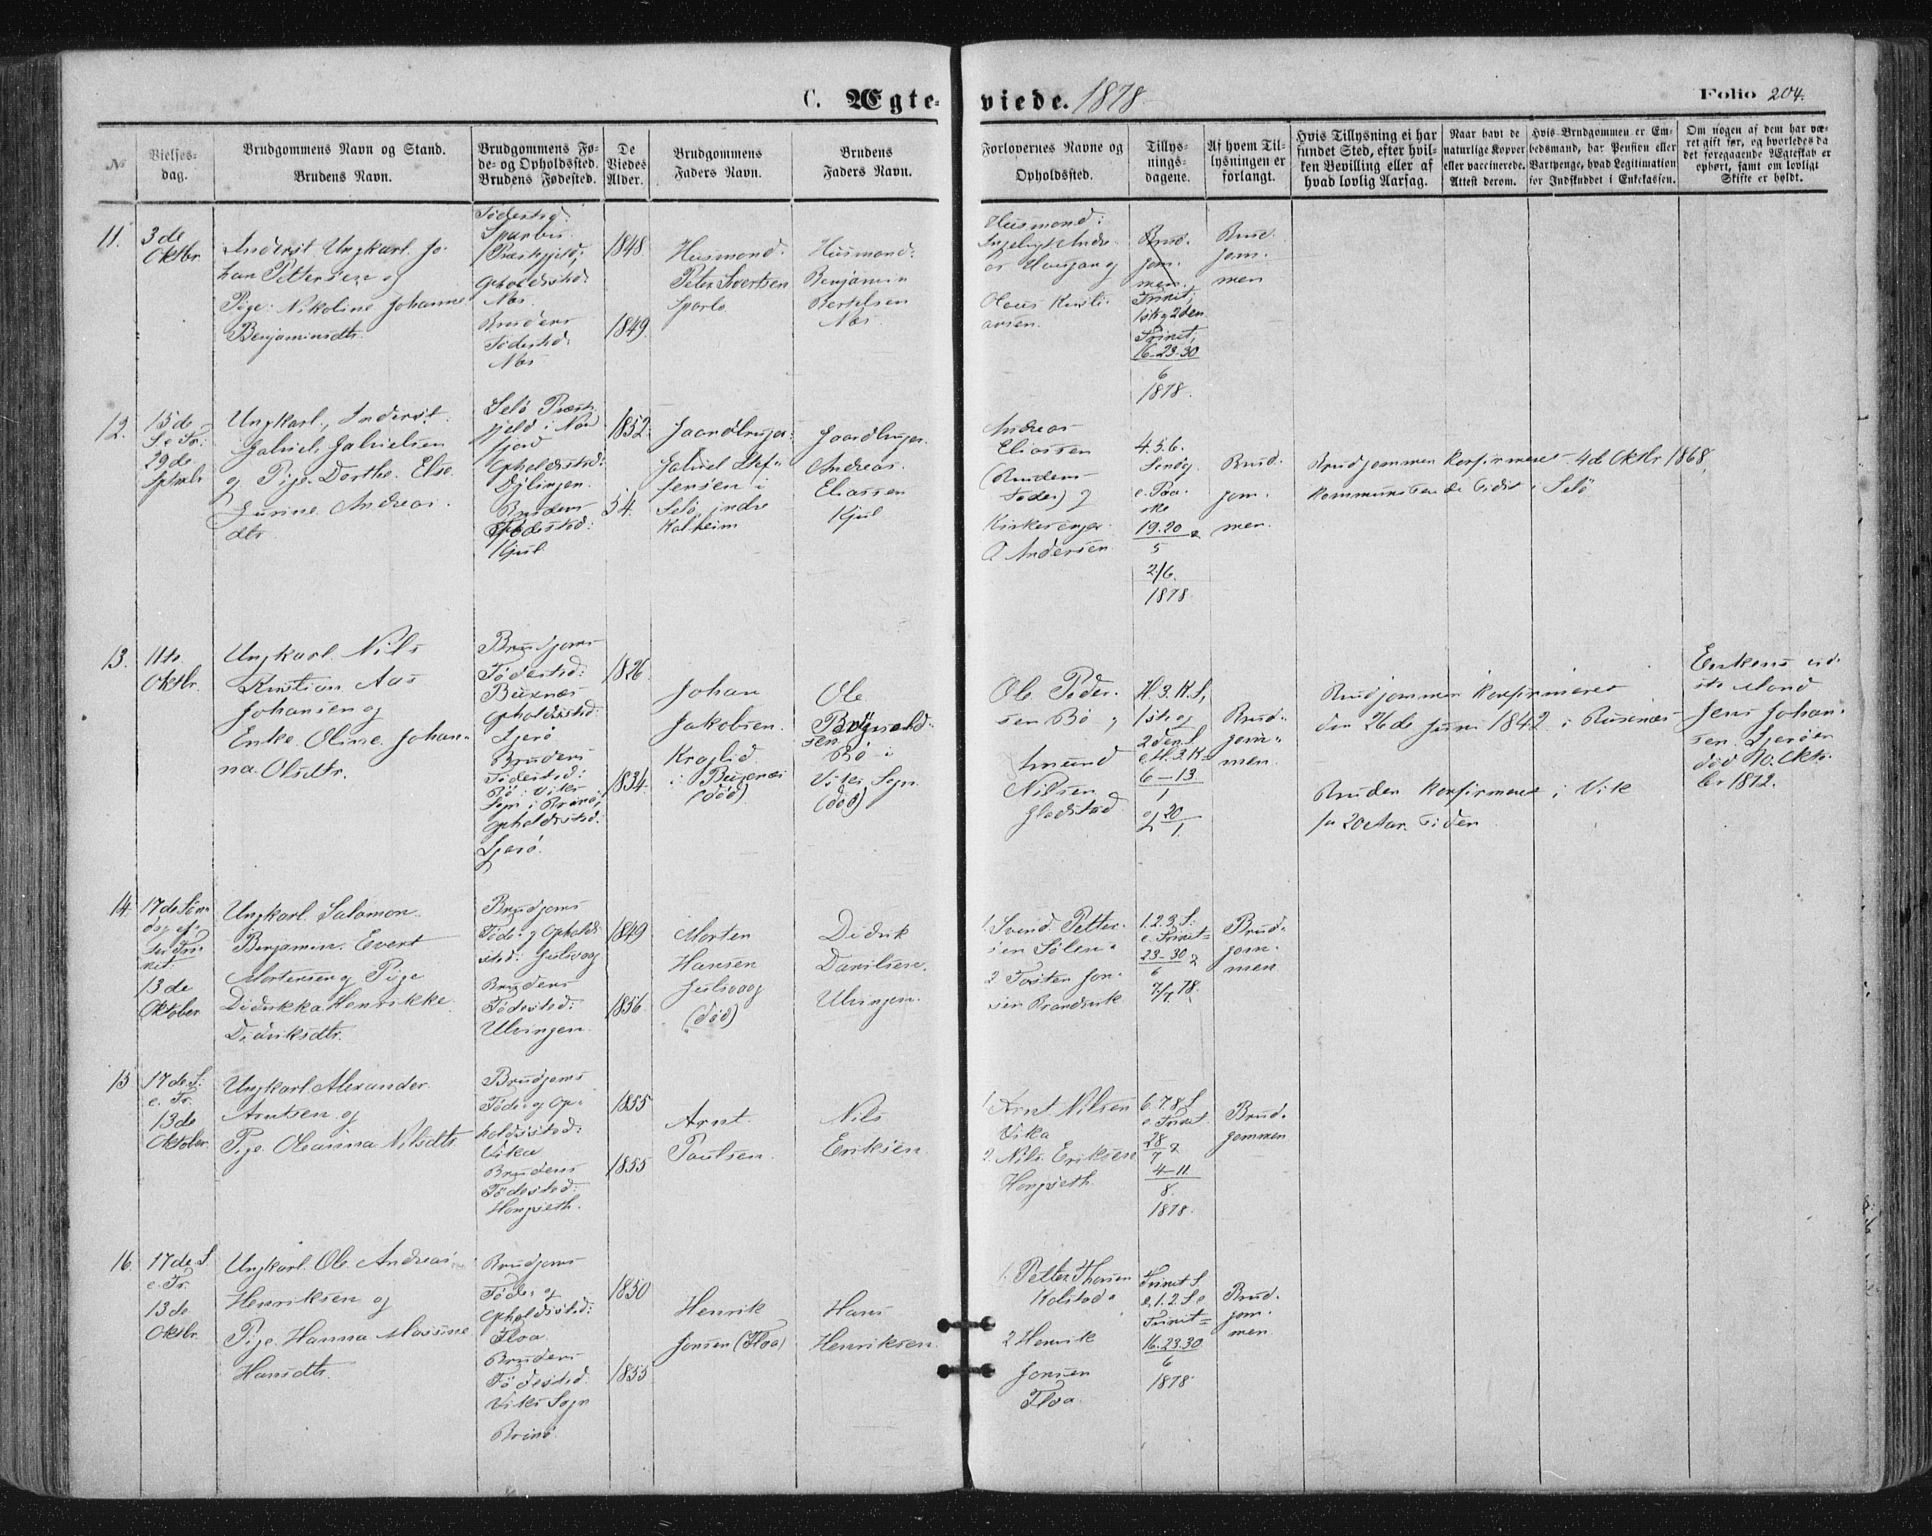 C. Ægteviede. 1878
Folio 204.
No
Vielsesdag.
Brudgommens Navn og Stand.
Brudens Navn.
Brudgommens Føde- og Opholdsted. Brudens Fødested.
De Viedes Alder.
Brudgommens Faders Navn.
Brudens Faders Navn.
Forlovernes Navne og Opholdsted.
Tillysningsdagene.
Af hvem Tillysningen er forlangt.
Hvis Tillysning ei har fundet Sted, efter hvilken Bevilling eller af hvad lovlig Aarsag.
Naar havt de naturlige Kopper eller vaccinerede. Attest derom.
Hvis Brudgommen er Embedsmand, har Pension eller Vartpenge, hvad Legitimation for Indskuddet i Enkekassen.
Om nogen af dem har været gift før, og hvorledes da det foregaaende Ægteskab er ophørt, samt om lovligt Skifte er holdt.
11.
3de
Oktbr
Inderst, Ungkarl. Jo-
han Petersen og
Pige. Nikoline Johanne
Benjaminsdtr.
Fødested.
Sparbu
Præstgjeld:
Opholdssted:
Næs.
Brudens
Fødested:
Næs
1848.
1849.
Husmand.
Peter Sivertsen
Sparbo
Husmand.
Benjamin
Bertelsen
Næs.
Husmand:
Ingebrigt Andr-
Olaus Kristi-
ansen.
Brud-
gom-
men.
Trinit,
1ste og 2den
Trinit,
16-23-30
6
1878.
Brud-
gom-
men
12.
15de
S. e. Tr:
29de
Sptbr
Ungkarl, Inderst.
Gabriel Gabrielsen
og Pige. Dorthe. Else
Gurine Andreas-
dtr.
Selö Præst-
gjeld i Nor
fjord
Opholdssted:
Brudens
Fødested:
Kjul
1852.
54.
Gaardbruger
Gabriel Stef-
fensen i
Selö indre
Kalheim
Gaardbruger.
Andreas.
Eliassen
Kjul
Andreas
Eliassen
(Brudens
Fader) og
Kirkesanger
O Andersen.
4.5.6.
Søndg.
e. Paa-
ske
19.20 &
5
2/6.
1878
Brud-
gom-
men.
Brudgommen Konfirmeret 4de Oktbr 1868.
Kommunserede Sidst i Selö
13.
11te
Oktbr.
Ungkarl. Nils
Kristian Aas
Johansen og
Enke. Oline. Johan-
na. Olsdtr.
Brudgoms
Fødested:
Buxnæs
Opholdssted:
Brudens
Fødested:
Bö i Viks
Sogn i Brönö;
Opholdssted:
1826.
1834.
Johan
Jakobsen.
i Buxnæs
(död)
Ole
Bö i
Viks Sogn
(död)
Ole Peder-
sen Bö og
Amund
Nilsen
Gladstad
H. 3. K. S,
1ste og
2den S
e. H. 3. K
6-13
1
og 20
1.
Brud-
gom-
men.
Brudgommen Konfirmeret
den 26de Juni 1842 i Buxnæs
Bruden Konfirmeret i Vik
for 20 Aar siden
Enkens sid-
ste Mand
Jens Johan-
sen
död 10. Okto-
ber 1872.
14.
17de Søn-
dag ef-
ter Tri-
nit.
13de
Oktober
Ungkarl. Salamon.
Benjamin. Evert
Mortensen og Pige
Didrikka Henrikke
Didriksdtr.
Brudgoms
Føde- og Opholds-
sted:
Brudens
Fødested:
Ulvingen.
1849
1856.
Morten
Hansen
(död)
Didrik
Danilsen.
Ulvingen.
1. Svend. Petter-
sen
2 Torsten Jon-
sen
1.2.3.S:
e. Trinit=
23-30 &
6
7/7 78.
Brud-
gom-
men
15
17de S:
e. Tr.
13de
Oktober.
Ungkarl Alexander
Arntsen og
Pige. Oleanna Nilsdtr.
Brudgoms
Føde- og Op-
holdssted:
Vika
Brudens
Fødested:
Hongseth.
1855
1855
Arnt
Paulsen.
Nils
Eriksen
1. Arnt Nilsen
Vika
2. Nils Eriksen
Hongseth.
6.7.8 S
e. Trinit.
28 &
7
4-11
8.
1878.
Brud-
gommen
16.
17de. S
e. Tr.
13de
Oktbr.
Ungkarl. Ole Andreas
Henriksen og
Pige. Hanna Massine
Hansdtr.
Brudgoms
Føde- og
Opholdssted:
Floa.
Brudens
Fødested.
Viks Sogn
Brönö.
1850
1855
Henrik
Jonsen (Floa)
Hans
Henriksen.
1. Petter Thorsen
Kolstad.
2 Henrik
Jonsen
Floa.
Trinit S
&. 1.2.S e
Trinit=
16.23.30
6
1878
Brud-
gom-
men